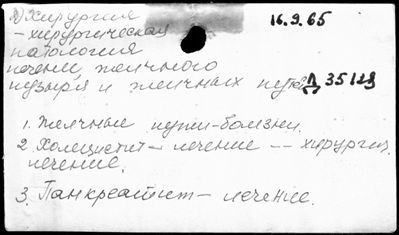 а) Хирургия 16.9.65
– хирургическая
патология
печени, желчного
пузыря и желчных путей Д 35123
1. Желчные пути-болезни.
2. Холецистит – лечение -- хирургич.
лечение.
3. Панкреатит – лечение.